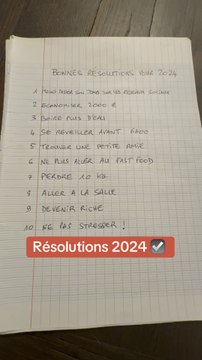 BONNES RESOLUTIONS POUR 2024
1 MOINS
2 ECONOMISER 2000 €
3 BOIRE PLUS D'EAU
4 SE REVEILLER AVANT 6H00
5 TROUVER UNE PETITE AMIE
6 NE PLUS ALLER AU FAST FOOD
7 PERDRE 10 KG
8 ALLER A LA SALLE
9 DEVENIR RICHE
10 NE PAS STRESSER !
Résolutions 2024 ☑️